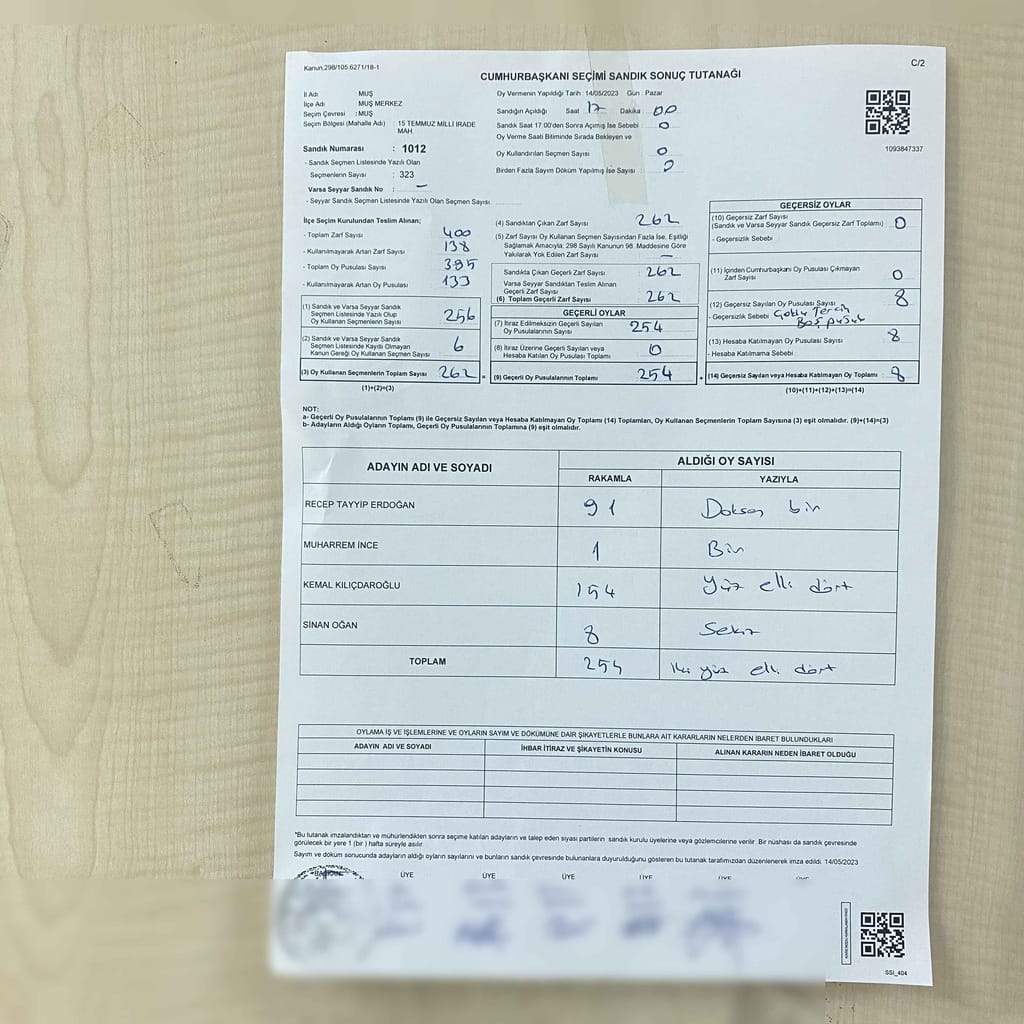 Kanun,298/105,6271/18-1
C/2
CUMHURBAŞKANI SEÇİMİ SANDIK SONUÇ TUTANAĞI
İl Adı : MUŞ
İlçe Adı : MUŞ MERKEZ
Seçim Çevresi : MUŞ
Seçim Bölgesi (Mahalle Adı) : 15 TEMMUZ MİLLİ İRADE
MAH
Sandık Numarası : 1012
- Sandık Seçmen Listesinde Yazılı Olan
Seçmenlerin Sayısı : 323
Varsa Seyyar Sandık No : -
- Seyyar Sandık Seçmen Listesinde Yazılı Olan Seçmen Sayısı
Oy Vermenin Yapıldığı Tarih : 14/05/2023 Gün : Pazar
Sandığın Açıldığı Saat 17 Dakika 00
Sandık Saat 17:00'den Sonra Açımış İse Sebebi 0
Oy Verme Saati Bitiminde Sırada Bekleyen ve
Oy Kullandırılan Seçmen Sayısı 0
Birden Fazla Sayım Döküm Yapılmış İse Sayısı 0
1093847337
İlçe Seçim Kurulundan Teslim Alınan;
- Toplam Zarf Sayısı 400
- Kullanılmayarak Artan Zarf Sayısı 138
- Toplam Oy Pusulası Sayısı 395
- Kullanılmayarak Artan Oy Pusulası 133
(1) Sandık ve Varsa Seyyar Sandık
Seçmen Listesinde Yazılı Olup
Oy Kullanan Seçmenlerin Sayısı 256
(2) Sandık ve Varsa Seyyar Sandık
Seçmen Listesinde Kayıtlı Olmayan
Kanun Gereği Oy Kullanan Seçmen Sayısı 6
(3) Oy Kullanan Seçmenlerin Toplam Sayısı 262
(1)+(2)=(3)
(4) Sandıktan Çıkan Zarf Sayısı 262
(5) Zarf Sayısı Oy Kullanan Seçmen Sayısından Fazla İse, Eşitliği
Sağlamak Amacıyla, 298 Sayılı Kanunun 98. Maddesine Göre
Yakılarak Yok Edilen Zarf Sayısı -
Sandıkta Çıkan Geçerli Zarf Sayısı 262
Varsa Seyyar Sandıktan Teslim Alınan
Geçerli Zarf Sayısı
(6) Toplam Geçerli Zarf Sayısı 262
GEÇERLİ OYLAR
(7) İtiraz Edilmeksizin Geçerli Sayılan
Oy Pusulalarının Sayısı 254
(8) İtiraz Üzerine Geçerli Sayılan veya
Hesaba Katılan Oy Pusulası Toplamı 0
= (9) Geçerli Oy Pusulalarının Toplamı 254
GEÇERSİZ OYLAR
(10) Geçersiz Zarf Sayısı
(Sandık ve Varsa Seyyar Sandık Geçersiz Zarf Toplamı) 0
- Geçersizlik Sebebi
(11) İçinden Cumhurbaşkanı Oy Pusulası Çıkmayan
Zarf Sayısı 0
(12) Geçersiz Sayılan Oy Pusulası Sayısı 8
- Geçersizlik Sebebi Çoklu Tercih
Boş pusula
(13) Hesaba Katılmayan Oy Pusulası Sayısı 8
- Hesaba Katılmama Sebebi
+ (14) Geçersiz Sayılan veya Hesaba Katılmayan Oy Toplamı 8
(10)+(11)+(12)+(13)=(14)
NOT:
a- Geçerli Oy Pusulalarının Toplamı (9) ile Geçersiz Sayılan veya Hesaba Katılmayan Oy Toplamı (14) Toplamları, Oy Kullanan Seçmenlerin Toplam Sayısına (3) eşit olmalıdır. (9)+(14)=(3)
b- Adayların Aldığı Oyların Toplamı, Geçerli Oy Pusulalarının Toplamına (9) eşit olmalıdır.
ADAYIN ADI VE SOYADI
ALDIĞI OY SAYISI
RAKAMLA YAZIYLA
RECEP TAYYİP ERDOĞAN 91 Doksan bir
MUHARREM İNCE 1 Bir
KEMAL KILIÇDAROĞLU 154 Yüz elli dört
SİNAN OĞAN 8 Sekiz
TOPLAM 254 iki yüz elli dört
OYLAMA İŞ VE İŞLEMLERİNE VE OYLARIN SAYIM VE DÖKÜMÜNE DAİR ŞİKAYETLERLE BUNLARA AİT KARARLARIN NELERDEN İBARET BULUNDUKLARI
ADAYIN ADI VE SOYADI İHBAR İTİRAZ VE ŞİKAYETİN KONUSU ALINAN KARARIN NEDEN İBARET OLDUĞU
"Bu tutanak imzalandıktan ve mühürlendikten sonra seçime katılan adayların ve talep eden siyasi partilerin sandık kurulu üyelerine veya gözlemcilerine verilir. Bir nüshası da sandık çevresinde
görülecek bir yere 1 (bir ) hafta süreyle asılır.
Sayım ve döküm sonucunda adayların aldığı oyların sayılarını ve bunların sandık çevresinde bulunanlara duyurulduğunu gösteren bu tutanak tarafımızdan düzenlenerek imza edildi. 14/05/2023
BAŞKAN ÜYE ÜYE ÜYE ÜYE ÜYE ÜYE
SSI_404